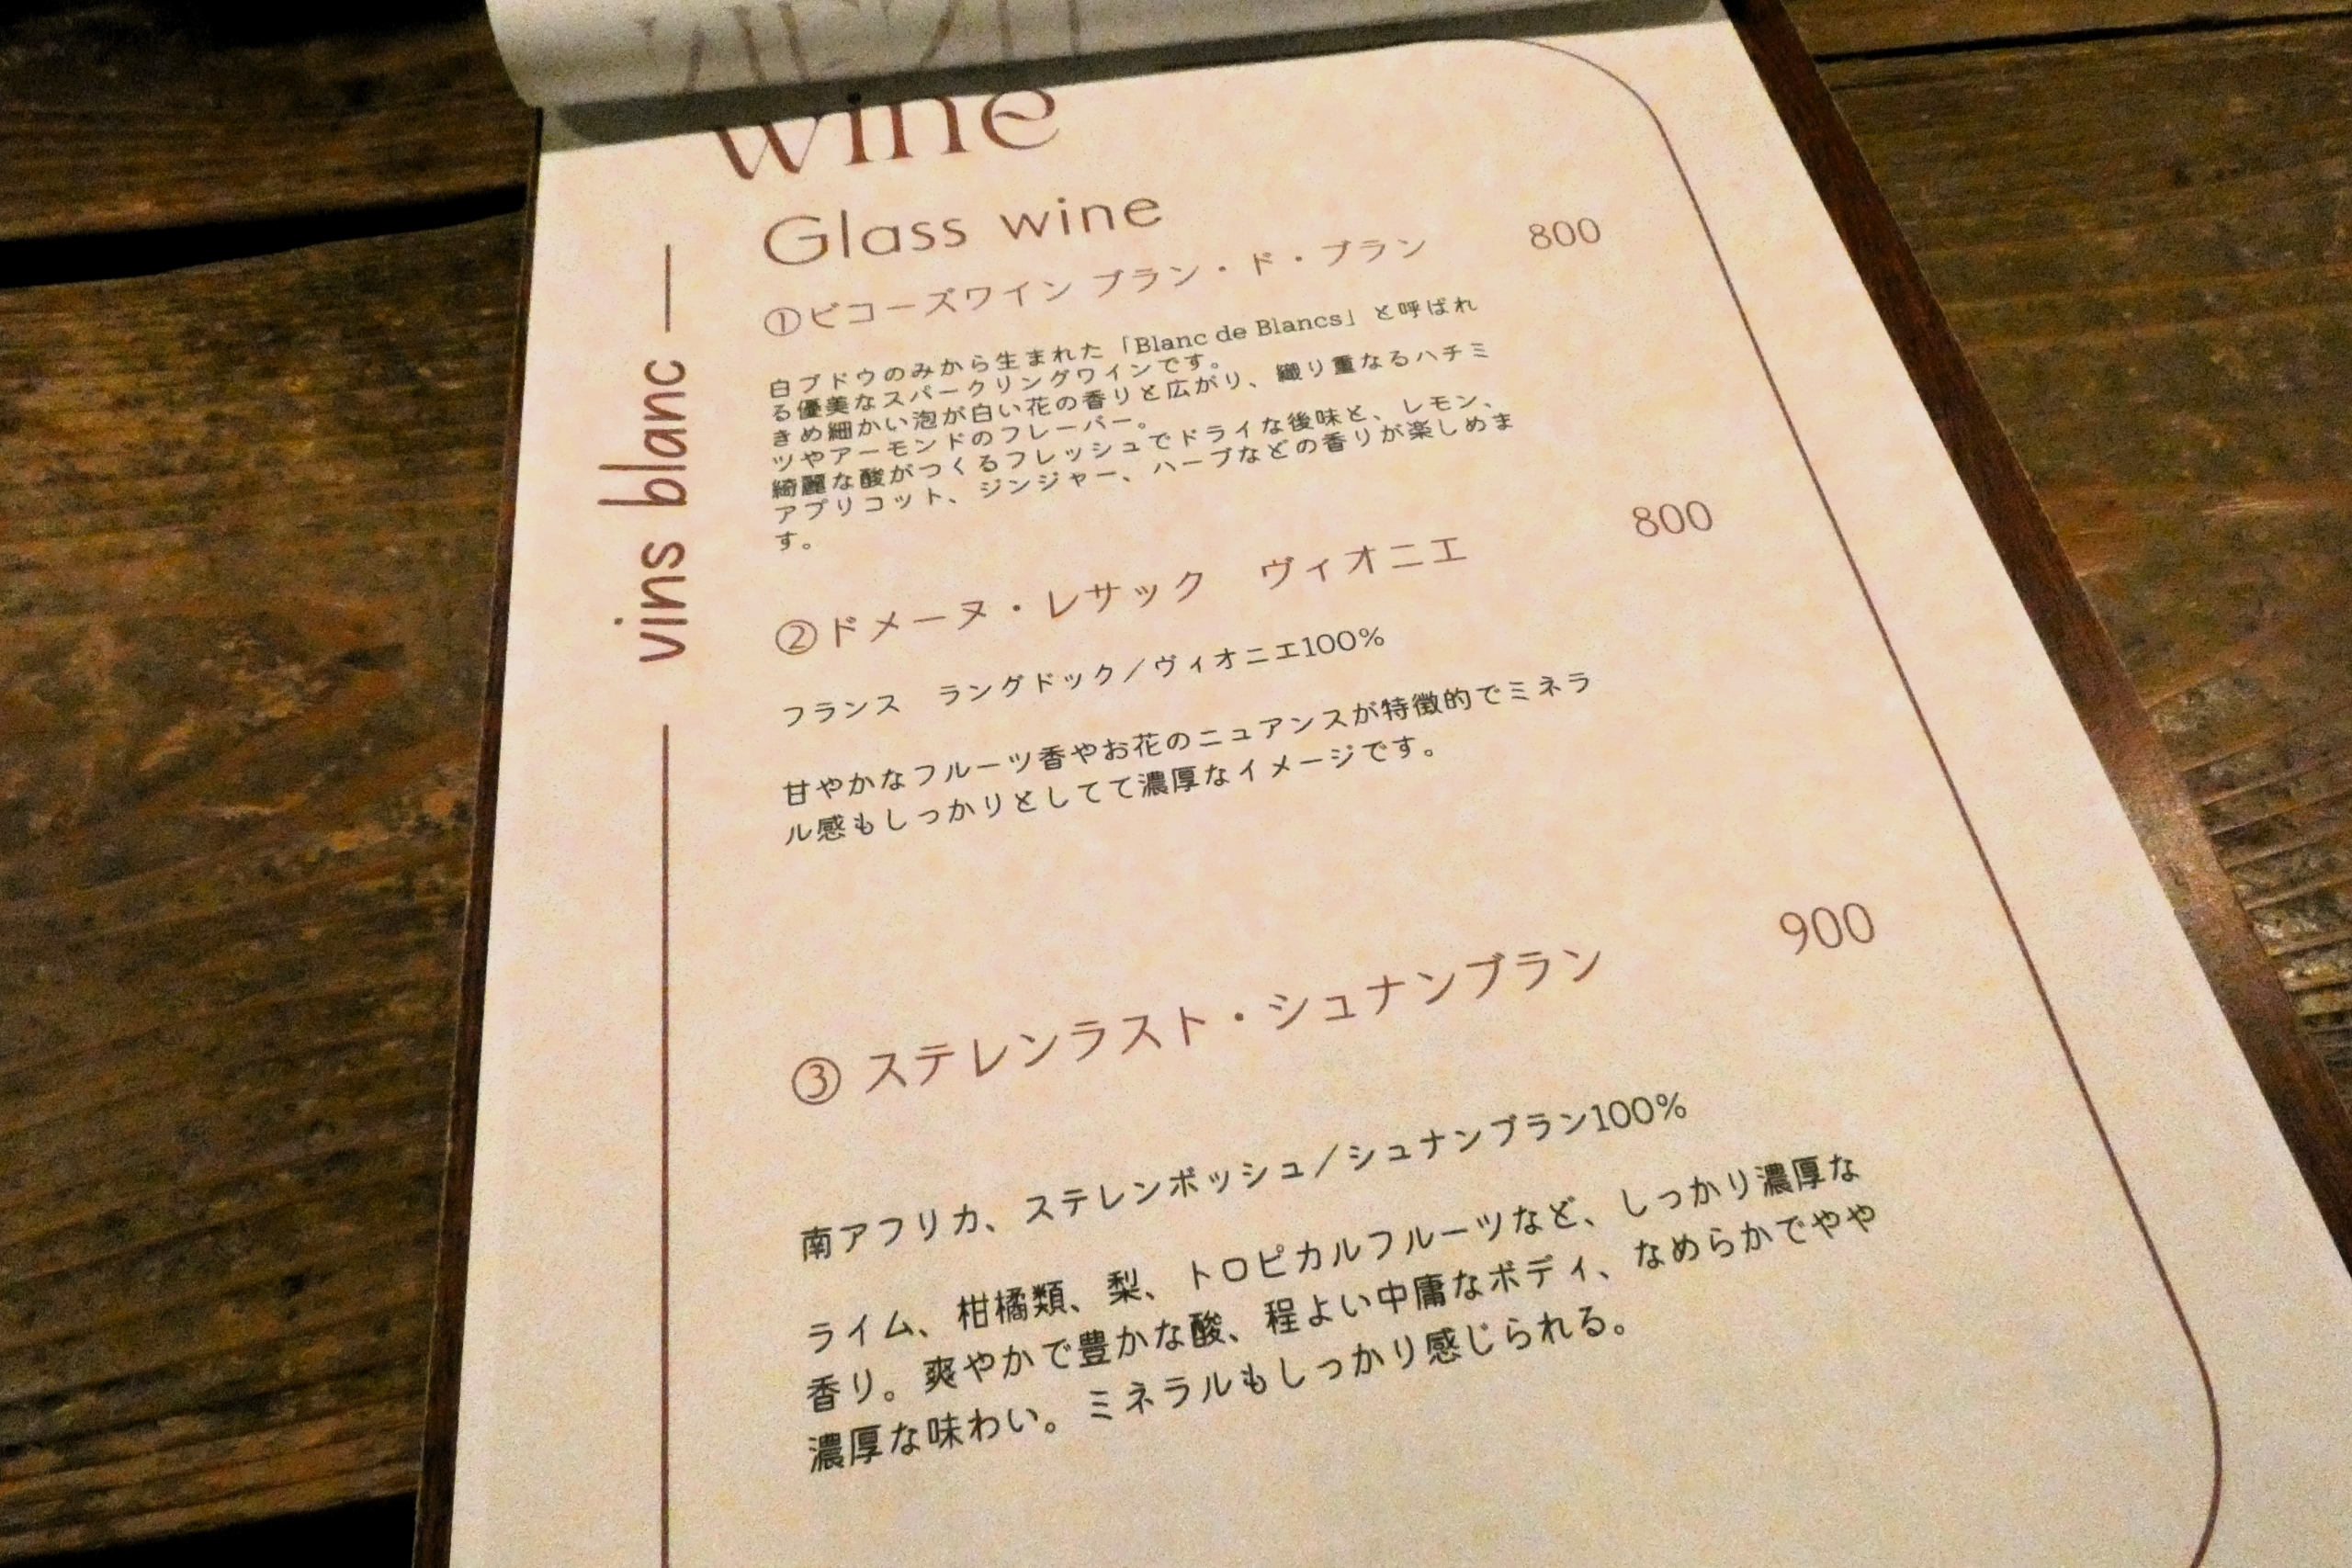 wine
Glass wine
vins blanc
①ビコーズワイン ブラン・ド・ブラン 800
白ブドウのみから生まれた「Blanc de Blancs」と呼ばれ
る優美なスパークリングワインです。
きめ細かい泡が白い花の香りと広がり、織り重なるハチミ
ツやアーモンドのフレーバー。
綺麗な酸がつくるフレッシュでドライな後味と、レモン、
アプリコット、ジンジャー、ハーブなどの香りが楽しめま
す。
②ドメーヌ・レサック　ヴィオニエ 800
フランス　ラングドック／ヴィオニエ100%
甘やかなフルーツ香やお花のニュアンスが特徴的でミネラ
ル感もしっかりとしてて濃厚なイメージです。
③ ステレンラスト・シュナンブラン 900
南アフリカ、ステレンボッシュ／シュナンブラン100%
ライム、柑橘類、梨、トロピカルフルーツなど、しっかり濃厚な
香り。爽やかで豊かな酸、程よい中庸なボディ、なめらかでやや
濃厚な味わい。ミネラルもしっかり感じられる。